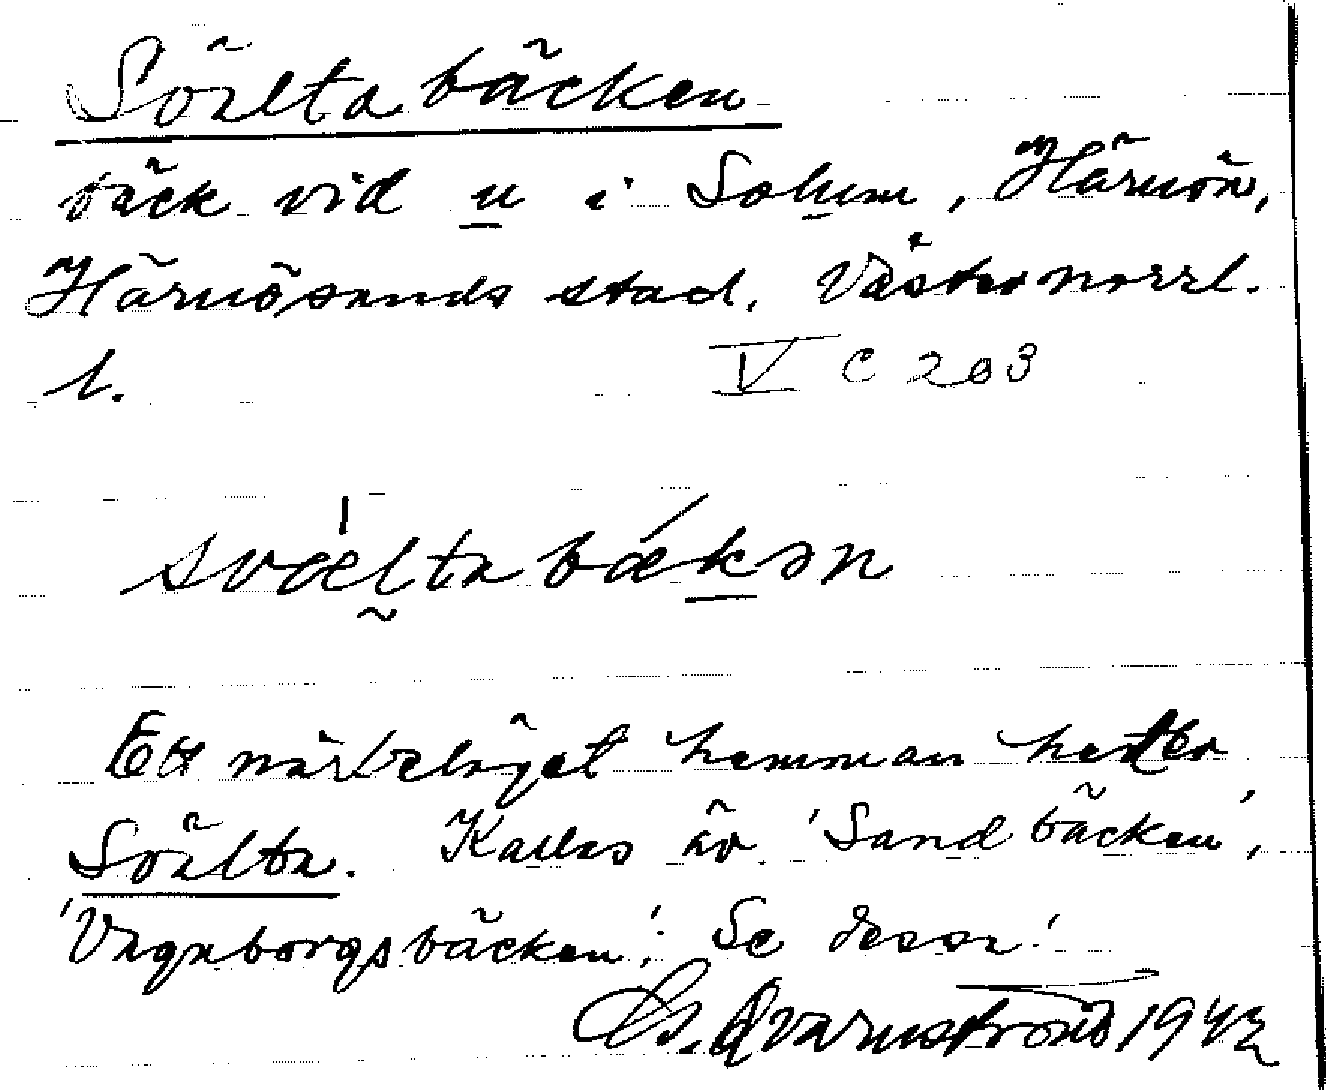 Svältabäcken
bäck vid u i Solum, Härnön,
Härnösands stad, Västernorrl.
l. V C 203
svæltabækən
Ett närbeläget hemman heter
Svälta. Kallas äv. 'Sandbäcken',
'Vägaborgsbäcken'. Se dessa!
Qvarnström 1942